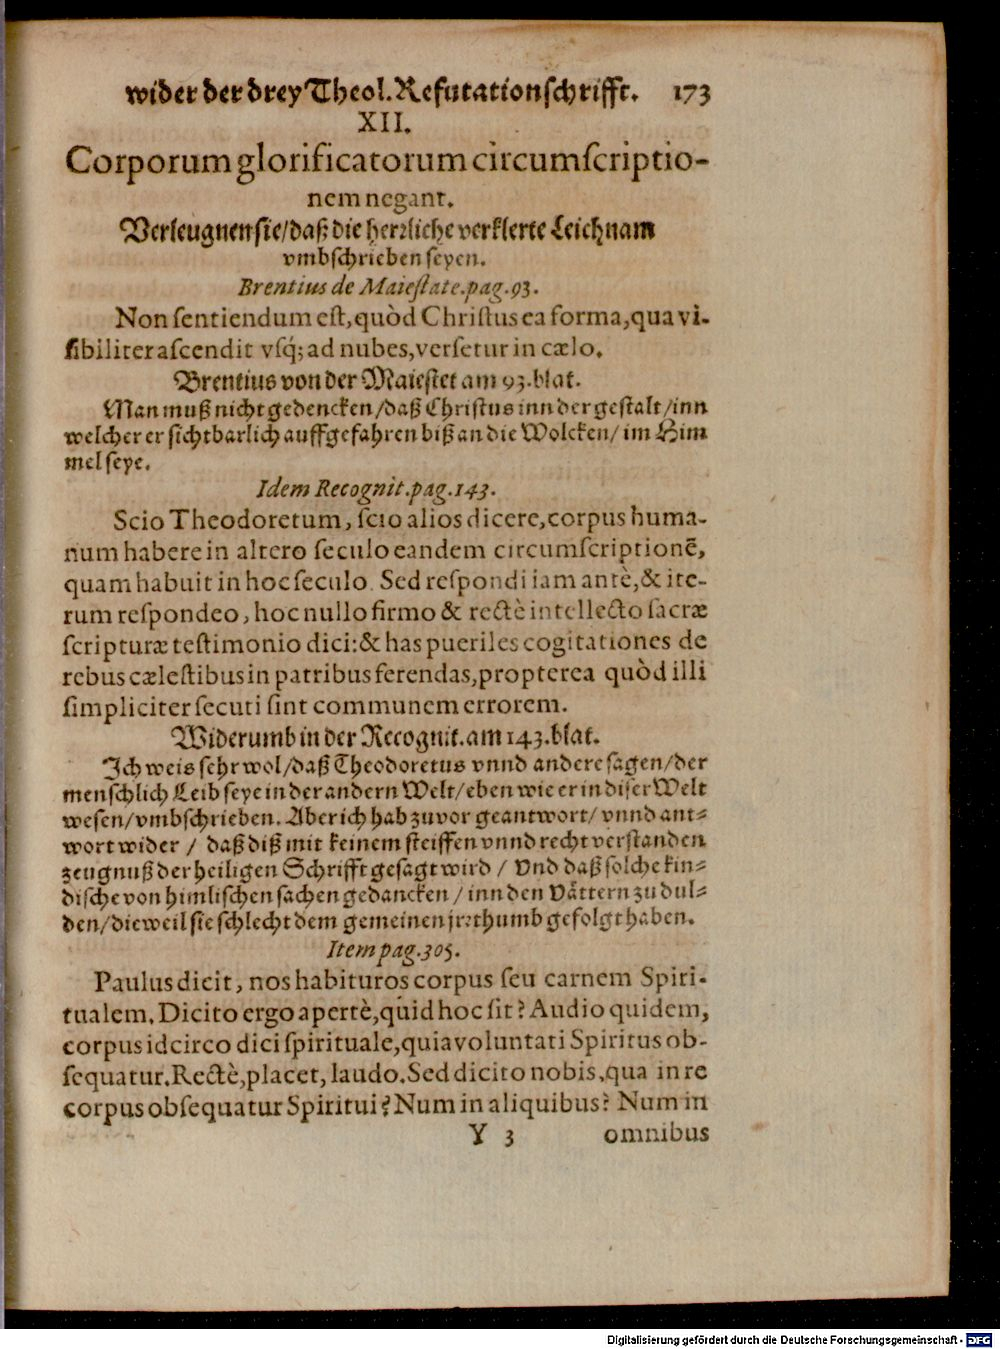 wider der drey Theol. Refutationschrifft. 173
XII.
Corporum glorificatorum circumſcriptio-
nem negant.
Verleugnen sie/daß die herꝛliche verklerte Leichnam
vmbschrieben seyen.
Brentius de Maieſtate. pag. 93.
Non ſentiendum eſt, quòd Chriſtus ea forma, qua vi-
ſibiliter aſcendit vſq́; ad nubes, verſetur in cælo.
Brentius von der Maiestet am 93. blat.
Man muß nicht gedencken/daß Christus inn der gestalt/inn
welcher er sichtbarlich auffgefahren biß an die Wolcken/ im Him
mel seye.
Idem Recognit. pag. 143.
Scio Theodoretum, ſcio alios dicere, corpus huma-
num habere in altero ſeculo eandem circumſcriptionē,
quam habuit in hoc ſeculo. Sed reſpondi iam antè, & ite-
rum reſpondeo, hoc nullo firmo & rectè intellecto ſacræ
ſcripturæ teſtimonio dici: & has pueriles cogitationes de
rebus cæleſtibus in patribus ferendas, propterea quòd illi
ſimpliciter ſecuti ſint communem errorem.
Widerumb in der Recognit. am 143. blat.
Ich weis sehr wol/daß Theodoretus vnnd andere sagen/der
menschlich Leib seye in der andern Welt/eben wie er in diser Welt
wesen/vmbschrieben. Aber ich hab zuvor geantwort/ vnnd ant-
wort wider / daß diß mit keinem steiffen vnnd recht verstanden
zeugnuß der heiligen Schrifft gesagt wird / Vnd daß solche kin-
dische von himlischen sachen gedancken / inn den Vättern zu dul-
den/dieweil sie schlecht dem gemeinen jrꝛthumb gefolgt haben.
Item pag. 305.
Paulus dicit, nos habituros corpus ſeu carnem Spiri-
tualem. Dicito ergo apertè, quid hoc ſit? Audio quidem,
corpus idcirco dici ſpirituale, quia voluntati Spiritus ob-
ſequatur. Rectè, placet, laudo. Sed dicito nobis, qua in re
corpus obſequatur Spiritui? Num in aliquibus? Num in
Y 3 omnibus
Digitalisierung gefördert durch die Deutsche Forschungsgemeinschaft - DFG